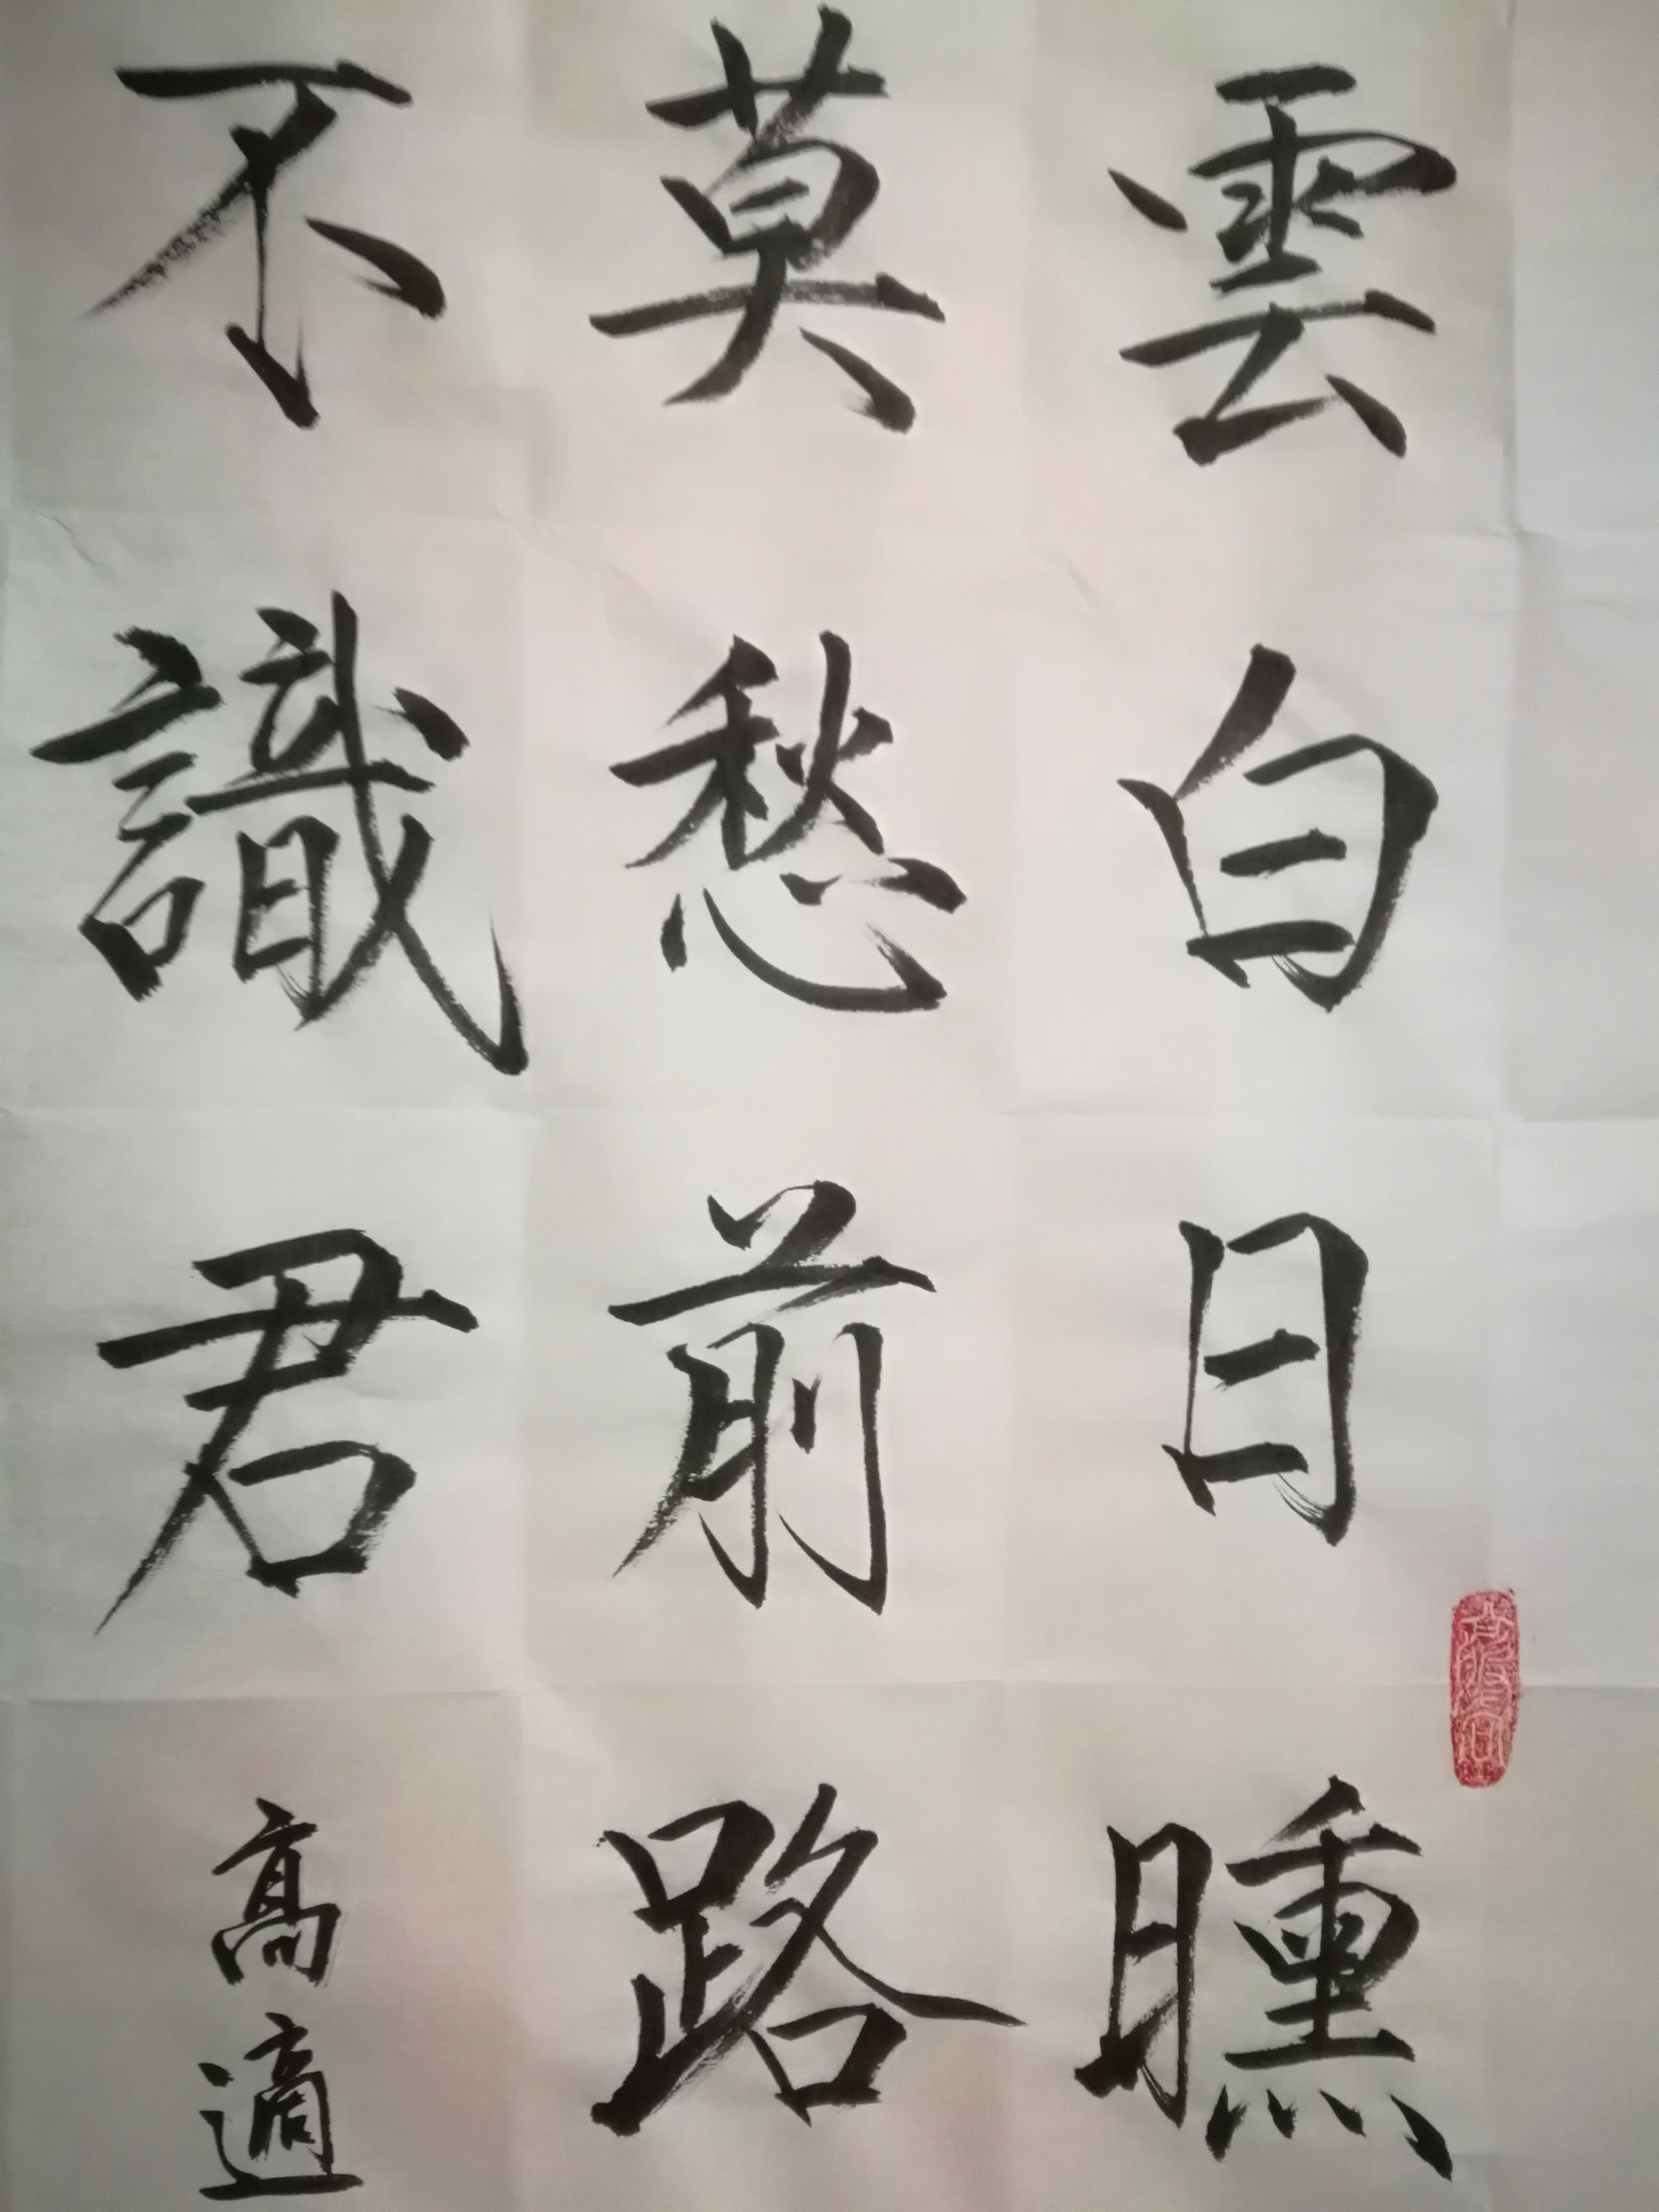 雲白日曛
莫愁前路
不識君
高適